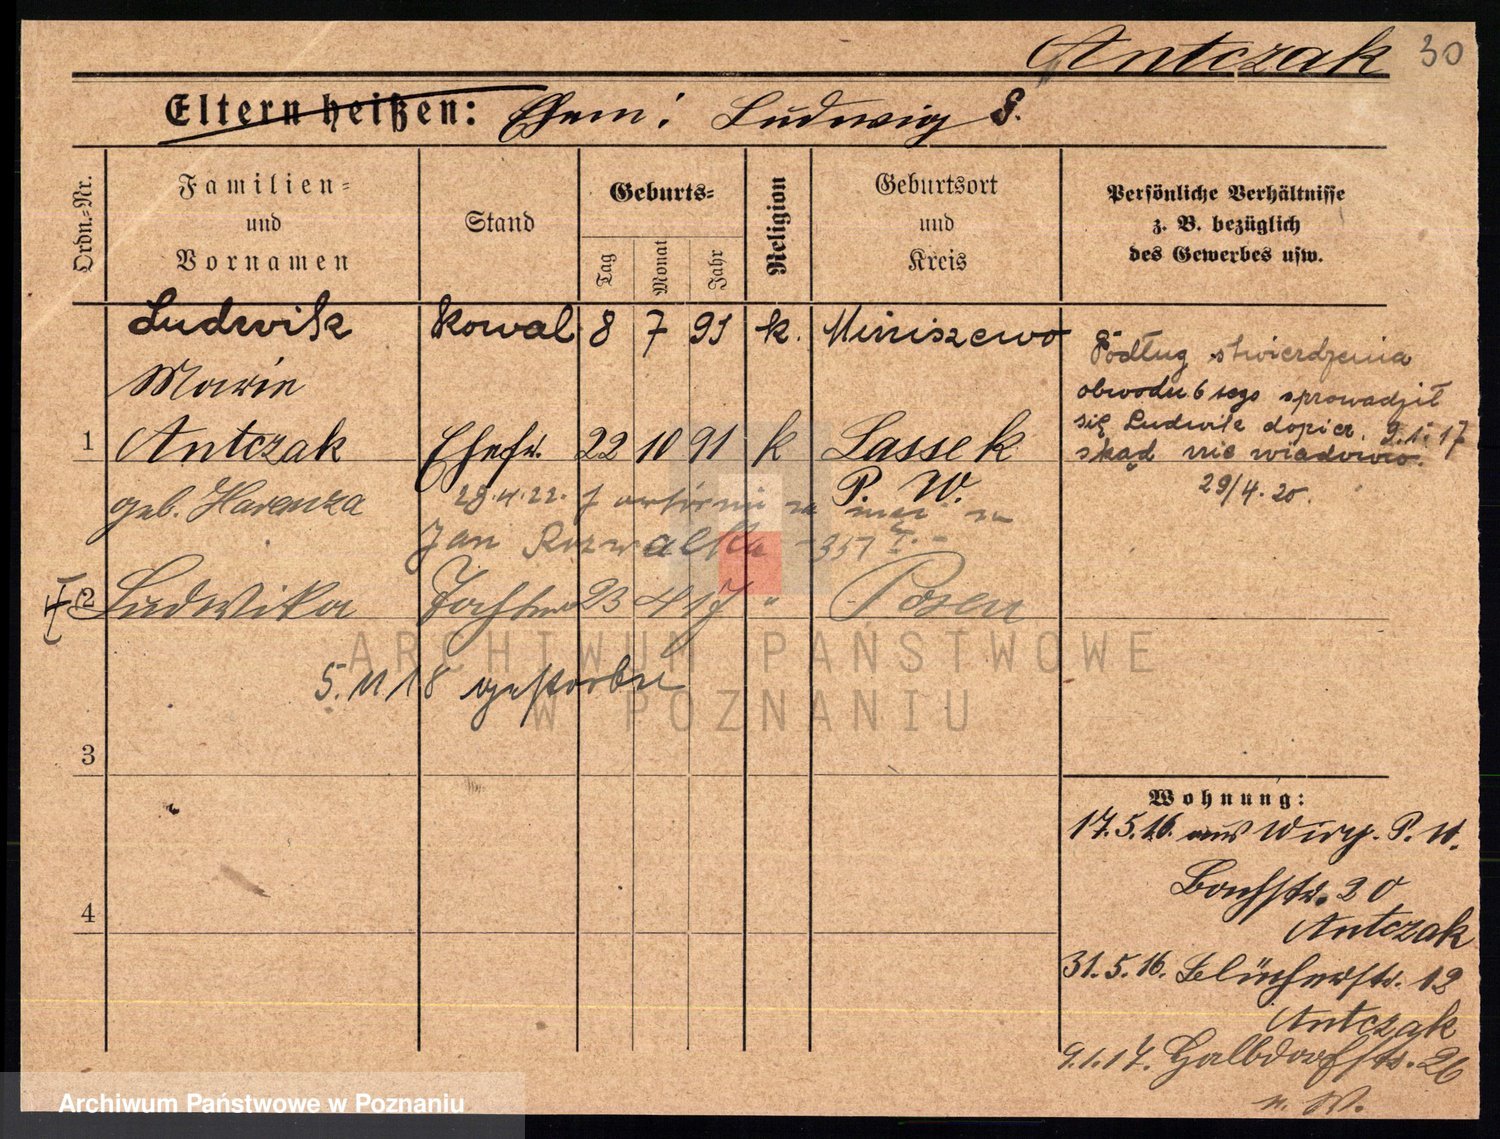 Antczak 30
Eltern heißen: Ehem: Ludwig S.
Ordn.=Nr.
Familien=
und
Vornamen
Stand
Geburts=
Tag
Monat
Jahr
Religion
Geburtsort
und
Kreis
Persönliche Verhältnisse
z. B. bezüglich
des Gewerbes usw.
Ludwik kowal 8 7 91 k. Miniszewo
Marie
1 Antczak Ehefr. 22 10 91 k Lassek
P. W.
geb. Harenza
28.4.22.
Jan 351
2 Ludwika Tochter 23 4 17 " Posen
5. 11 18 gestorben
3
4
Podług stwierdzenia
obwodu 6 tego sprowadził
się Ludwik dopier. 9.1.17
skąd nie wiadomo.
29/4.20.
Wohnung:
17.5.16. aus P. W.
Bachstr. 20
Antczak
31.5.16. Blücherstr. 12
Antczak
9.1.17. Halbdorfstr. 26
n. W.
ARCHIWUM PAŃSTWOWE
W POZNANIU
Archiwum Państwowe w Poznaniu